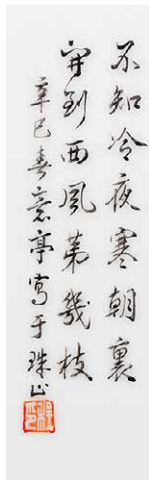 不知冷夜寒朝裏
開到西風第幾枝
辛巳春意亭寫于珠山